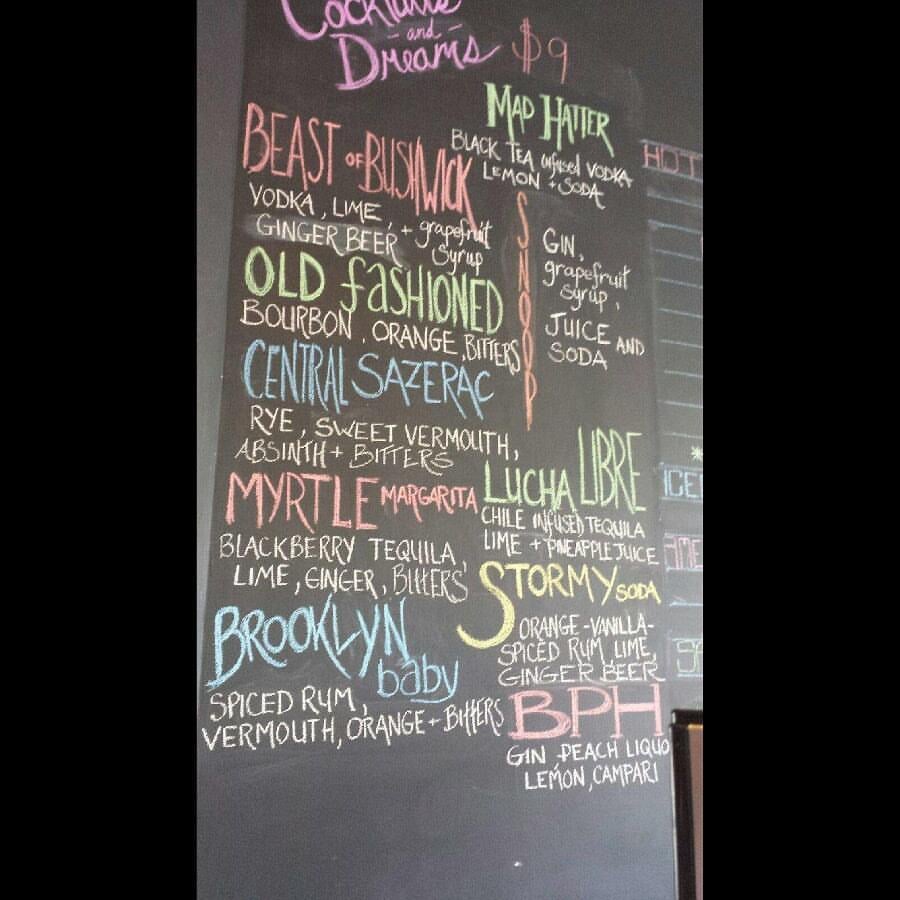 Cocktails
- and -
Dreams $9
BEAST OF BUSHWICK
VODKA, LIME,
GINGER BEER + grapefruit
syrup
OLD fASHIONED
BOURBON, ORANGE, BITTERS
CENTRAL SAZERAC
RYE, SWEET VERMOUTH,
ABSINTH + BITTERS
MYRTLE MARGARITA
BLACKBERRY TEQUILA,
LIME, GINGER, BITTERS
BROOKLYN
baby
SPICED RUM,
VERMOUTH, ORANGE + BITTERS
MAD HATTER
BLACK TEA infused VODKA
LEMON + SODA
SNOOP
GIN,
grapefruit
syrup,
JUICE AND
SODA
LUCHA LIBRE
CHILE INfUSED TEQUILA
LIME + PINEAPPLE JUICE
STORMY SODA
ORANGE-VANILLA-
SPICED RUM, LIME,
GINGER BEER
BPH
GIN, PEACH LIQUO
LEMON, CAMPARI
HOT
ICE